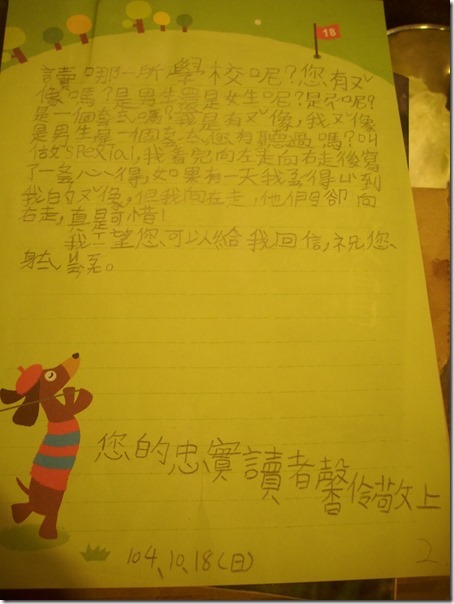 讀哪一所學校呢?您有ㄡˇ
像嗎?是男生還是女生呢?是 呢?
是一個 嗎?我是有ㄡˇ像,我ㄡˇ像
是男生是一個 您有聽過嗎?叫
做SpeXial,我看完向左走向右走後寫
了一 心得,如果有一天我 得 到
我的ㄡˇ像,但我向左走,他們卻向
右走,真是可惜!
我 望您可以給我回信,祝您
身 。
您的忠實讀者馨伶敬上
104.10.18(日)
2.
18